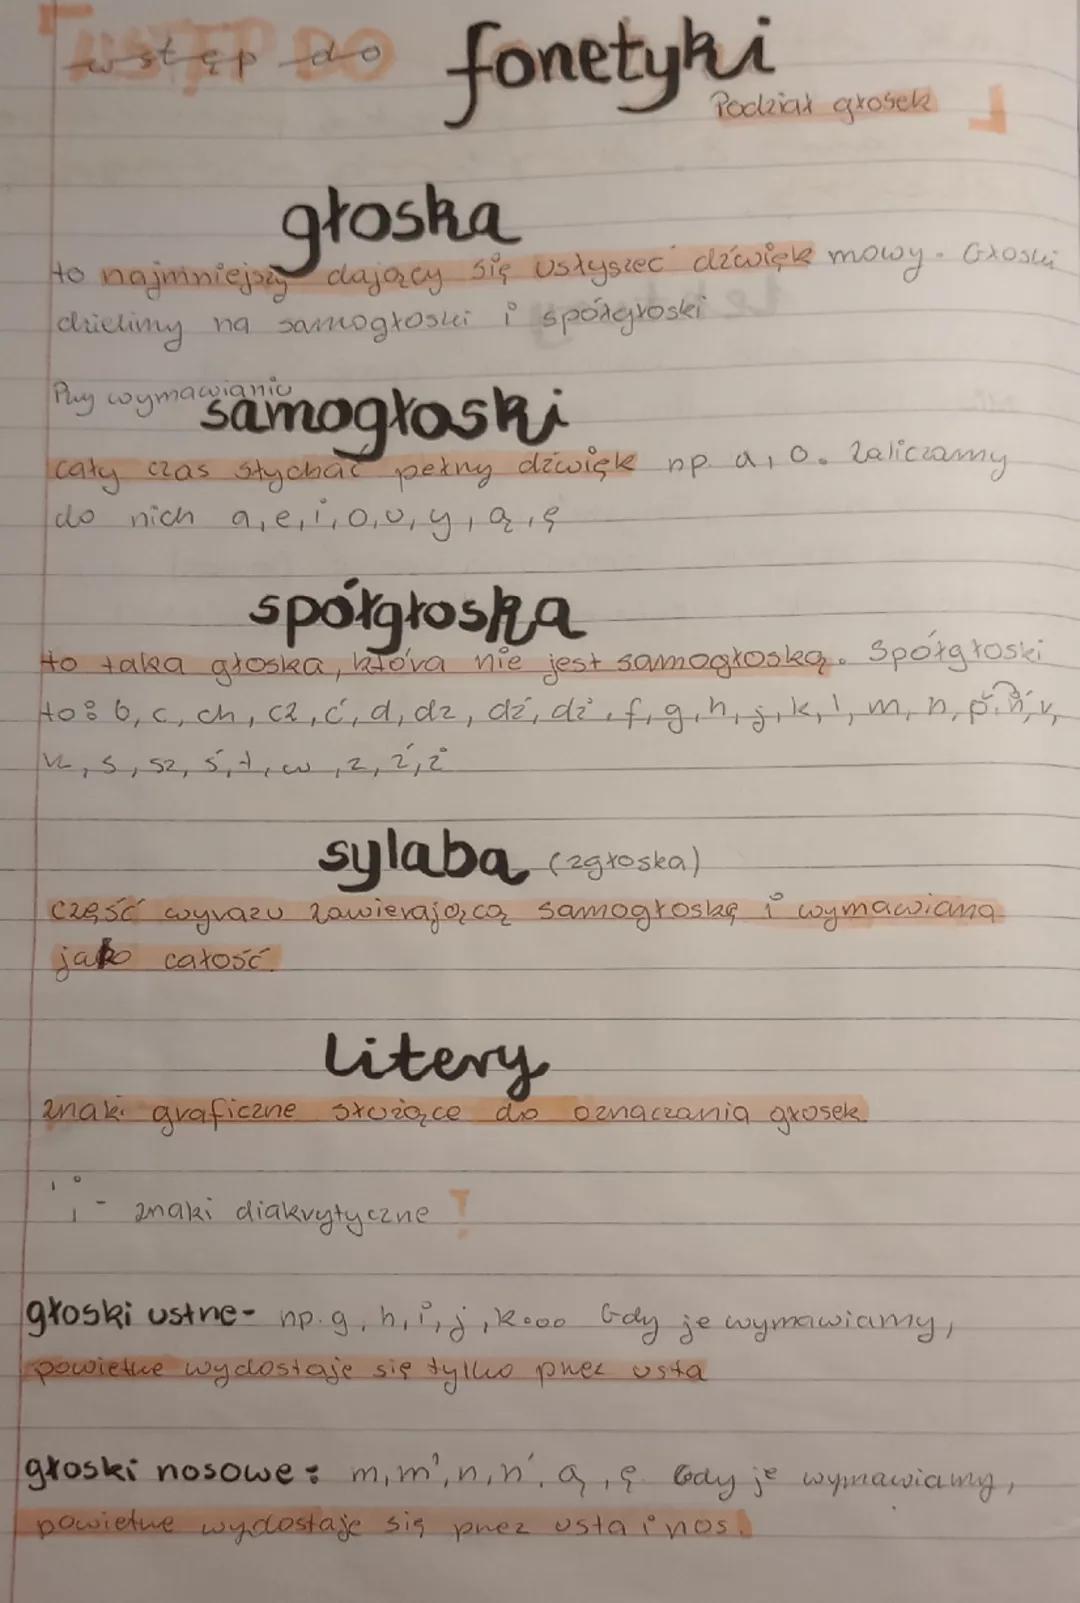 wstęp do fonetyki
Podział głosek
głoska
to najmniejszy dający się usłyszeć dźwięk mowy. Głoski
dzielimy na samogłoski i spółgłoski
Przy wymawianiu
samogłoski
cały czas słychać pełny dźwięk np. a, o. Zaliczamy
do nich a, e, i, o, u, y, ą, ę
spółgłoska
to taka głoska, która nie jest samogłoską. Spółgłoski
to: b, c, ch, cz, ć, d, dz, dź, dż, f, g, h, j, k, l, m, n, p, ń, r,
rz, s, sz, ś, t, w, z, ź, ż
sylaba (zgłoska)
część wyrazu zawierającą samogłoskę i wymawiana
jako całość.
Litery
znaki graficzne służące do oznaczania głosek
znaki diakrytyczne !
głoski ustne - np. g, h, i, j, k... Gdy je wymawiamy,
powietrze wydostaje się tylko przez usta
głoski nosowe: m, m', n, ń, ą, ę. Gdy je wymawiamy,
powietrze wydostaje się przez usta i nos.